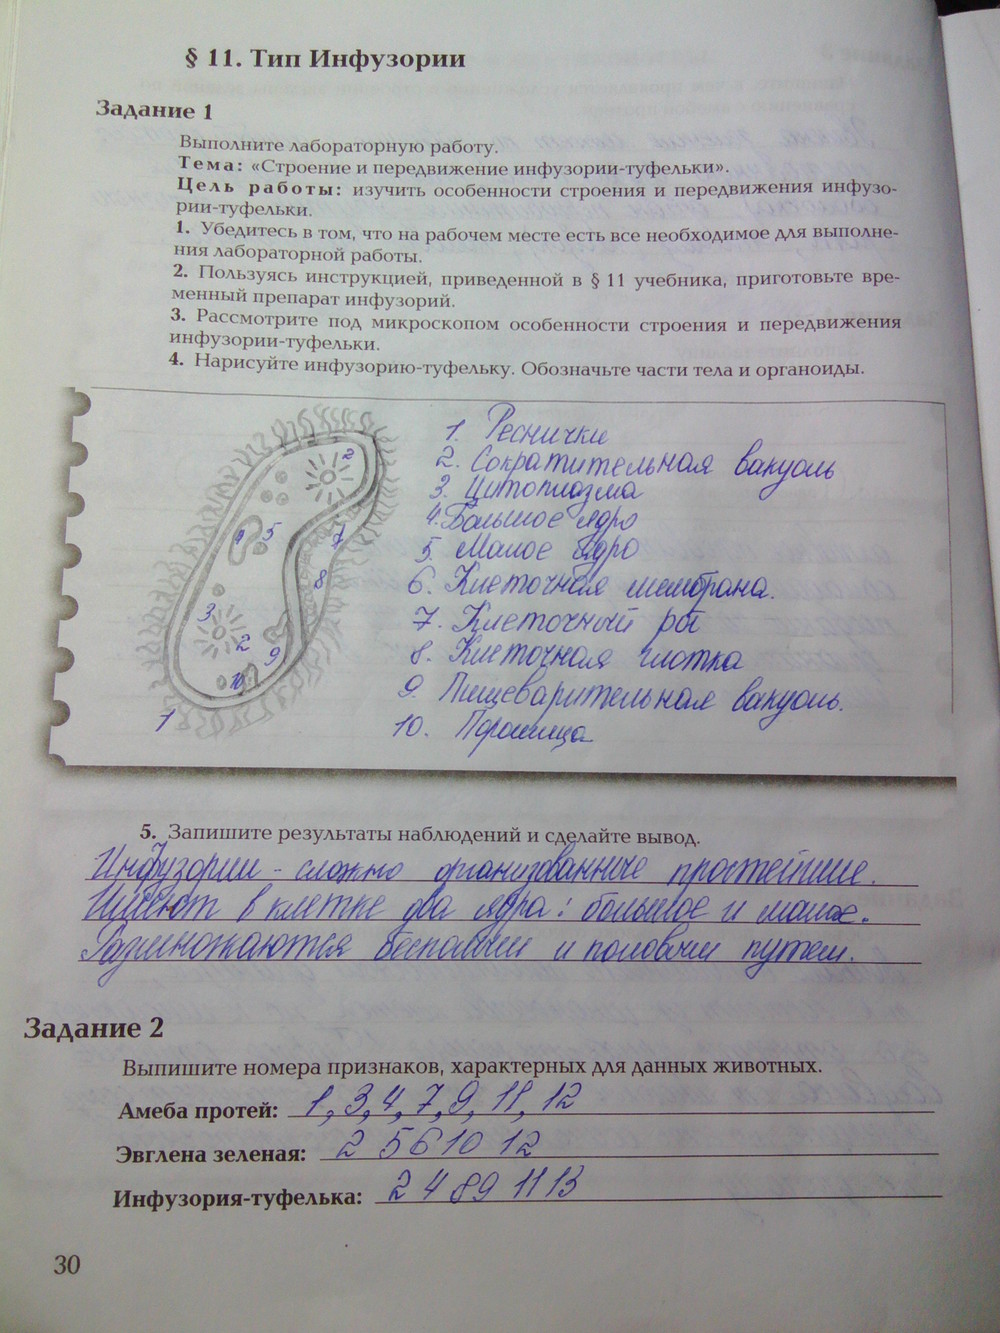 § 11. Тип Инфузории
Задание 1
Выполните лабораторную работу.
Тема: «Строение и передвижение инфузории-туфельки».
Цель работы: изучить особенности строения и передвижения инфузо-
рии-туфельки.
1. Убедитесь в том, что на рабочем месте есть все необходимое для выполне-
ния лабораторной работы.
2. Пользуясь инструкцией, приведенной в § 11 учебника, приготовьте вре-
менный препарат инфузорий.
3. Рассмотрите под микроскопом особенности строения и передвижения
инфузории-туфельки.
4. Нарисуйте инфузорию-туфельку. Обозначьте части тела и органоиды.
1. Реснички
2. Сократительная вакуоль
3. Цитоплазма
4. Большое ядро
5 Малое ядро
6. Клеточная мембрана.
7. Клеточный рот
8. Клеточная глотка
9. Пищеварительная вакуоль.
10. Порошица
2
4 5 7
8
3
2 9
10
1
5. Запишите результаты наблюдений и сделайте вывод.
Инфузории - сложно организованные простейшие.
Имеют в клетке два ядра: большое и малое.
Размножаются бесполым и половым путем.
Задание 2
Выпишите номера признаков, характерных для данных животных.
Амеба протей: 1, 3, 4, 7, 9, 11, 12
Эвглена зеленая: 2 5 6 10 12
Инфузория-туфелька: 2 4 8 9 11 13
30